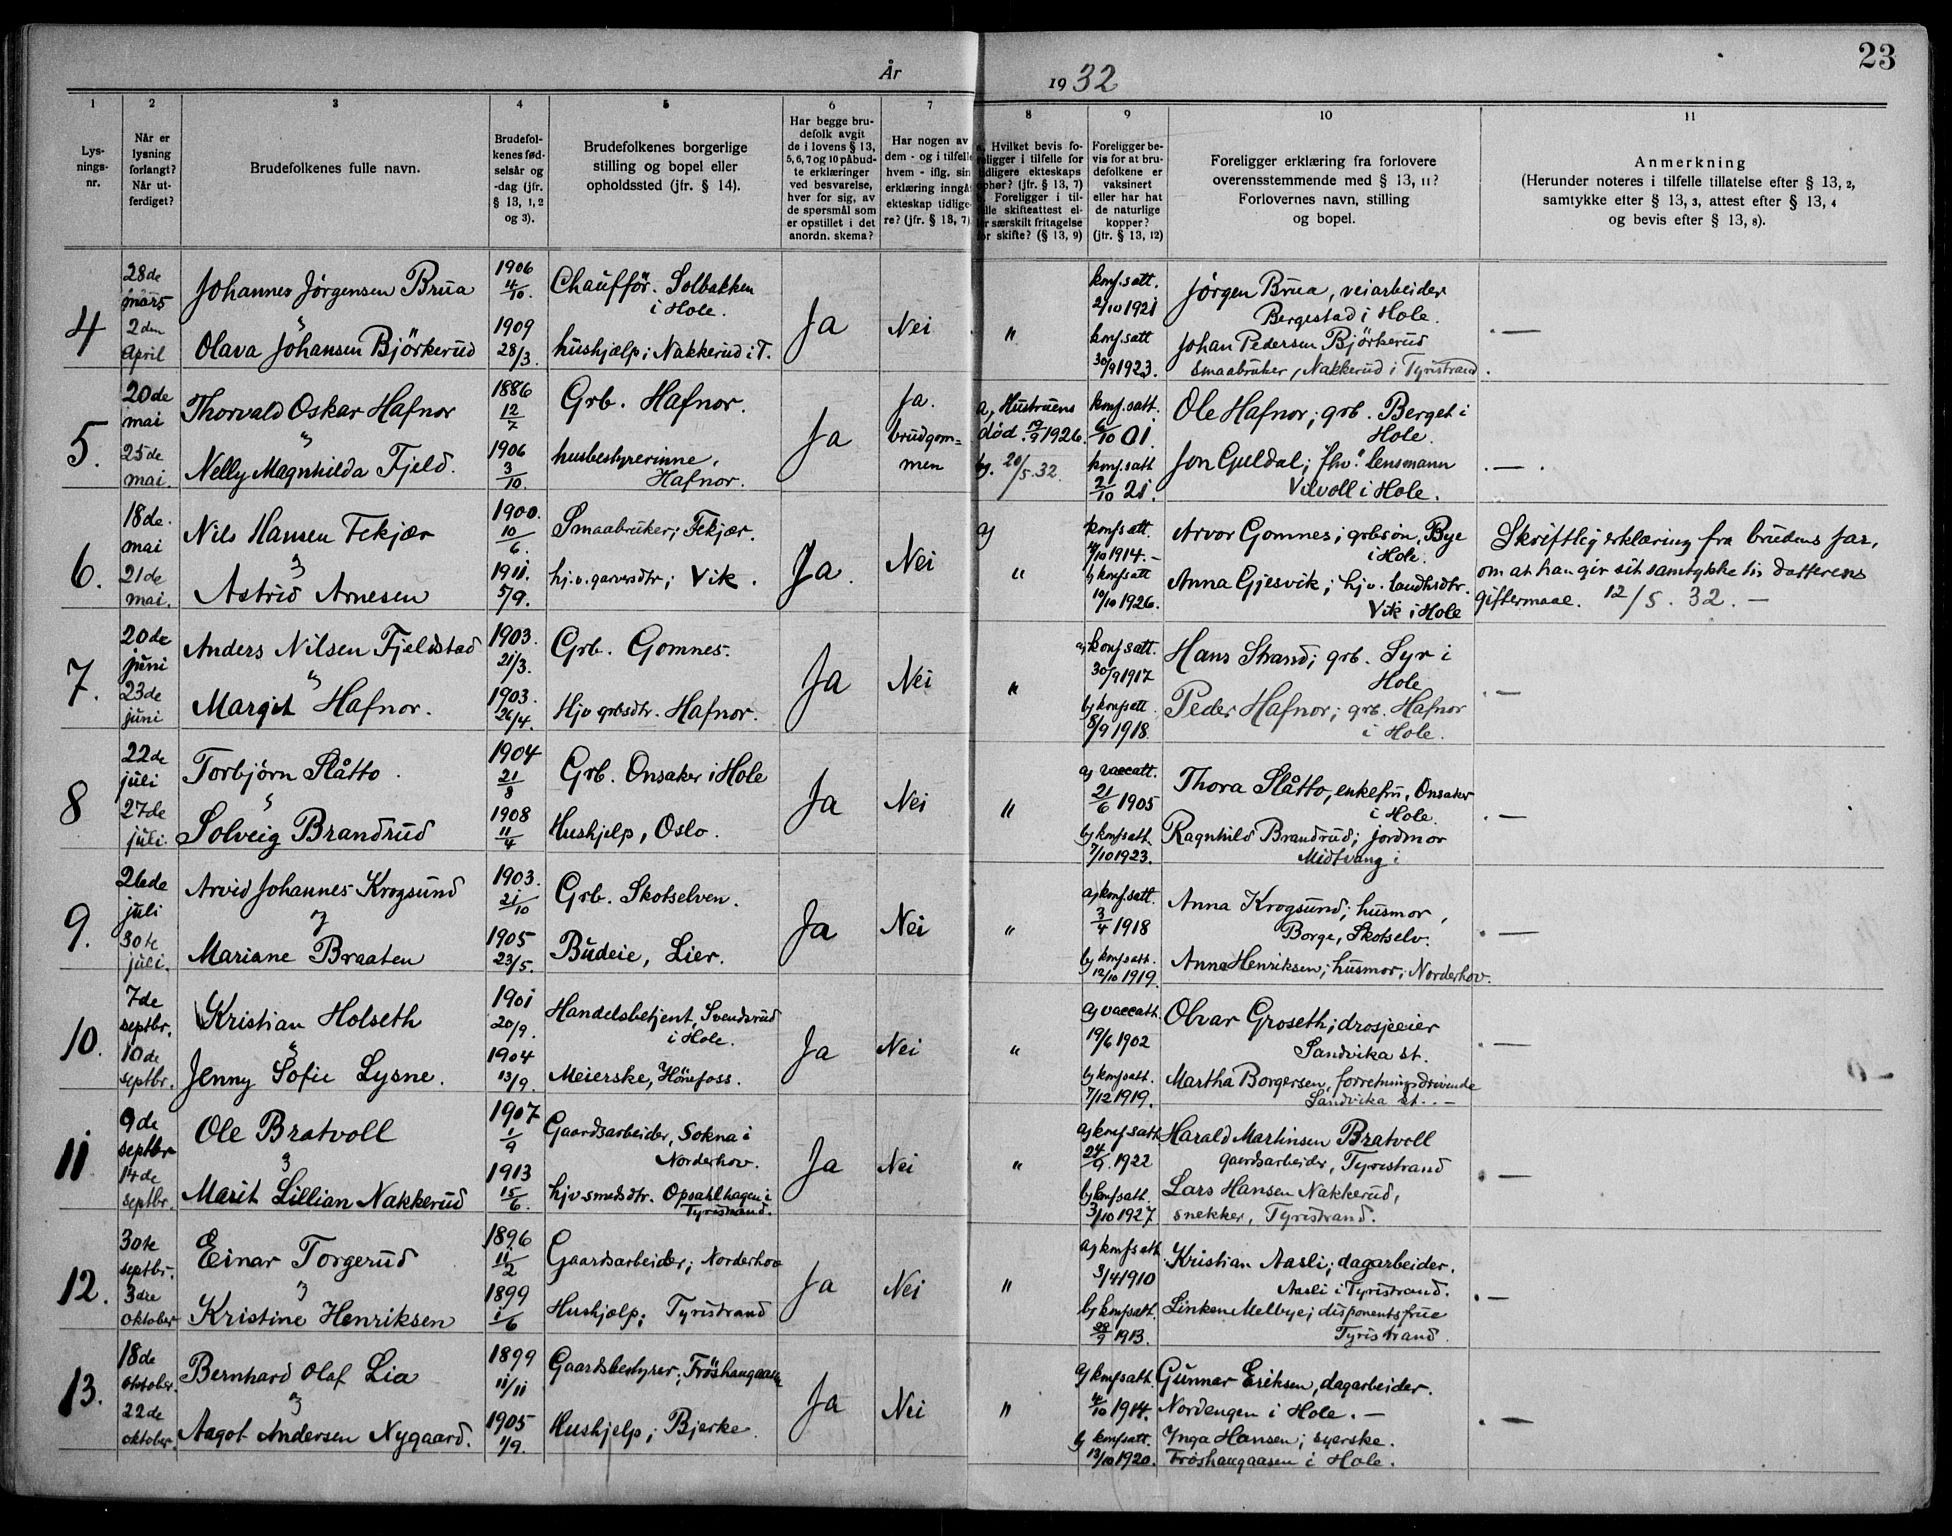 23
År 1932
1 2 3 4 5 6 7 8 9 10 11
Lys-
nings-
nr.
Når er
lysning
forlangt?
Når ut-
ferdiget?
Brudefolkenes fulle navn.
Brudefol-
kenes fød-
selsår og
-dag (jfr.
§ 13, 1, 2
og 3).
Brudefolkenes borgerlige
stilling og bopel eller
opholdssted (jfr. § 14).
Har begge bru-
defolk avgit
de i lovens § 13,
5, 6, 7 og 10 påbud-
te erklæringer
ved besvarelse,
hver for sig, av
de spørsmål som
er opstillet i det
anordn. skema?
Har nogen av
dem - og i tilfelle
hvem - iflg. sin
erklæring inngå
ekteskap tidlige-
re? (jfr. § 13, 7)
a. Hvilket bevis fo-
religger i tilfelle for
tidligere ekteskaps
ophør? (jfr. § 13, 7)
Foreligger i til-
felle skifteattest el-
ler særskilt fritagelse
for skifte? (§ 13, 9)
Foreligger be-
vis for at bru-
defolkene er
vaksinert
eller har hat
de naturlige
kopper?
(jfr. § 13, 12)
Foreligger erklæring fra forlovere
overensstemmende med § 13, 11?
Forlovernes navn, stilling
og bopel.
Anmerkning
(Herunder noteres i tilfelle tillatelse efter § 13, 2,
samtykke efter § 13, 3, attest efter § 13, 4
og bevis efter § 13, 8).
4
28de
mars
2den
April
Johannes Jørgensen Brua
"
Olava Johansen Björkerud
1906
4/10.
1909
28/3.
Chaufför. Solbakken
i Hole.
hushjælp; Nakkerud i T.
Ja
Nei
"
konf.satt.
2/10 1921
konf.satt
30/9 1923.
Jørgen Brua, veiarbeider
Bergestad i Hole.
Johan Pedersen Björkerud
smaabruker, Nakkerud i Tyristrand.
. —
5.
20de
mai
25de
mai.
Thorvald Oskar Hafnor
"
Nelly Magnhilda Fjeld.
1886
12/7
1906
3/10.
Grb. Hafnor.
husbestyrerinne,
Hafnor.
Ja
Ja.
brudgom=
men
a, Hustruens
død. 19/9 1926.
b. 20/5.32.
konf.satt.
6/10 01.
konf.satt
2/10 21.
Ole Hafnor; grb. Berget i
Hole.
Jon Guldal; fhv. lensmann
Vilvoll i Hole.
. — .
6.
18de.
mai
21de
mai.
Nils Hansen Fekjær
"
Astrid Arnesen
1900.
10/6.
1911.
5/9.
Smaabruker; Fekjær.
hj.v. garversdtr; Vik.
Ja.
Nei
a)
"
konf.satt.
4/10 1914.-
b) konf.satt
10/10 1926.
Arvor Gomnes; grbsøn, Bye
i Hole.
Anna Gjesvik; hjv. landhsdtr.
Vik i Hole
Skriftlig erklæring fra brudens far,
om at han gir sit samtykke til datterens
giftermaal. 12/5. 32. —
7.
20de
juni
23de
juni
Anders Nilsen Fjeldstad
"
Margit Hafnor.
1903.
21/3.
1903.
26/4.
Grb. Gomnes.
Hjv grbsdtr. Hafnor.
Ja
Nei
"
a) konf.satt.
30/9 1917
b) konf.satt.
8/9 1918.
Hans Strand; grb. Syr i
Hole
Peder Hafnor; grb. Hafnor
i Hole.
. —
8
22de
juli
27de
juli.
Torbjörn Slåtto.
"
Solveig Brandrud
1904
21/8
1908
11/4
Grb. Onsaker i Hole
Hushjelp, Oslo.
Ja
Nei
"
a) vaccatt.
21/6 1905
b) konf.satt.
7/10 1923.
Thora Slåtto, enkefru, Onsaker
i Hole.
Ragnhild Brandrud; jordmor
Midtvang i
. —
9.
26de
juli
30te
juli.
Arvid Johannes Krogsund
"
Mariane Braaten
1903.
21/10
1905
23/5.
Grb. Skotselven.
Budeie, Lier.
Ja
Nei
"
a) konf.satt.
3/4 1918
b) konf.satt.
12/10 1919.
Anna Krogsund; husmor,
Borge, Skotselv.
Anna Henriksen; husmor; Norderhov.
. —
10.
7de
septbr.
10de
septbr.
Kristian Holseth
"
Jenny Sofie Lysne.
1901
20/9.
1904
13/9.
Handelsbetjent, Svendsrud
i Hole.
Meierske, Hönefoss.
Ja
Nei
"
a) vaccatt.
19/6 1902
b) konf.satt.
7/12 1919.
Olvar Groseth; drosjeeier
Sandvika st.
Martha Borgersen, forretningsdrivende
Sandvika st. . —
. —
11
9de
septbr
14de
septbr.
Ole Bratvoll
"
Marit Lillian Nakkerud
1907
1/9
1913
15/6.
Gaardsarbeider, Sokna i
Norderhov.
hjv smedsdtr. Opsahlhagen i
Tyristrand.
Ja
Nei
"
a) konf.satt
24/9. 1922
b) konf.satt.
3/10 1927
Harald Martinsen Bratvoll
gaardsarbeider, Tyristrand
Lars Hansen Nakkerud,
snekker, Tyristrand.
. —
12.
30te
septbr.
3dre
oktober
Einar Torgerud
"
Kristine Henriksen
1896
11/2
1899
1/6
Gaardsarbeider; Norderhov
Hushjælp; Tyristrand
Ja
Nei
"
a) konf.satt.
3/4 1910
b) konf.satt.
28/9 1913.
Kristian Aasli; dagarbeider.
Aasli i Tyristrand.
Linken Melbye; disponentsfrue
Tyristrand.
. —
13.
18de
oktober.
22de
oktober.
Bernhard Olaf Lia
"
Aagot Andersen Nygaard.
1899
11/11
1905
1/9.
Gaardsbestyrer; Fröshaugaasen
Hushjelp; Bjerke
Ja
Nei
"
a) konf.satt.
4/10 1914.
b) konf.satt.
13/10 1920.
Gunnar Eriksen, dagarbeider.
Nordengen i Hole. —
Inga Hansen; syerske.
Frøshaugaasen i Hole.
. —